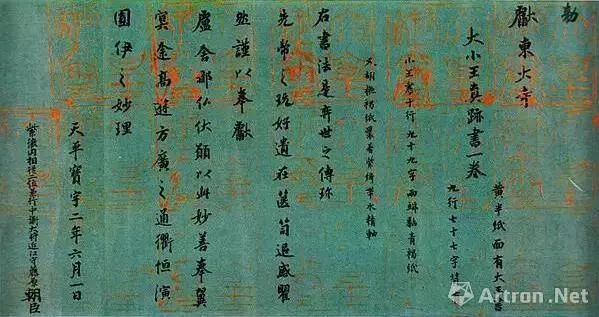 勅
獻東大寺
大小王真跡書一卷
黃半紙面有大王書
九行七十七字背
小王書十行九十九字兩端黏青褐紙
又胡桃褐紙裹着紫綺帶水精軸
右書法是弈世之傳珍
先帝之玩好遺在篋笥追感瞿
然謹以奉獻
盧舍那仏伏願以此妙善奉翼
冥途高遊方廣之通衢恒演
圓伊之妙理
天平寶字二年六月一日
紫微內相從二位兼行中衛大將近江守藤原朝臣
Artron.Net